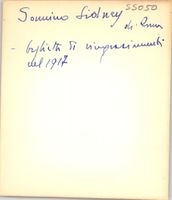 Sonnino Sidney SS050
di Roma
- biglietto di ringraziamenti
del 1917